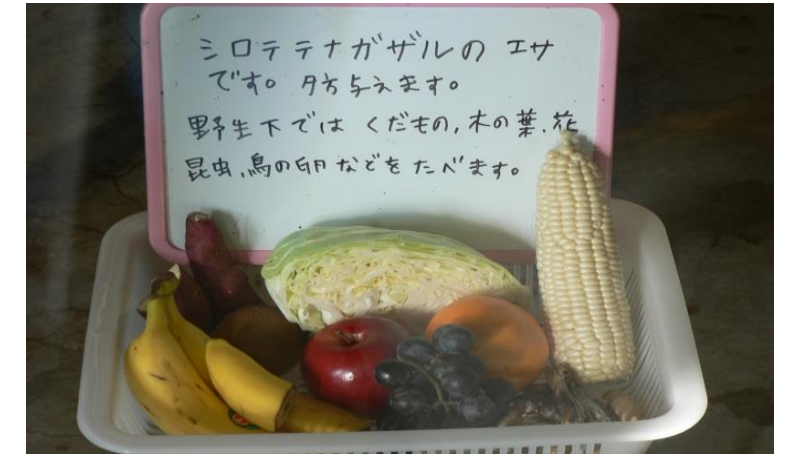 シロテテナガザルの エサ
です。 夕方与えます。
野生下では くだもの,木の葉,花
昆虫,鳥の卵などをたべます。